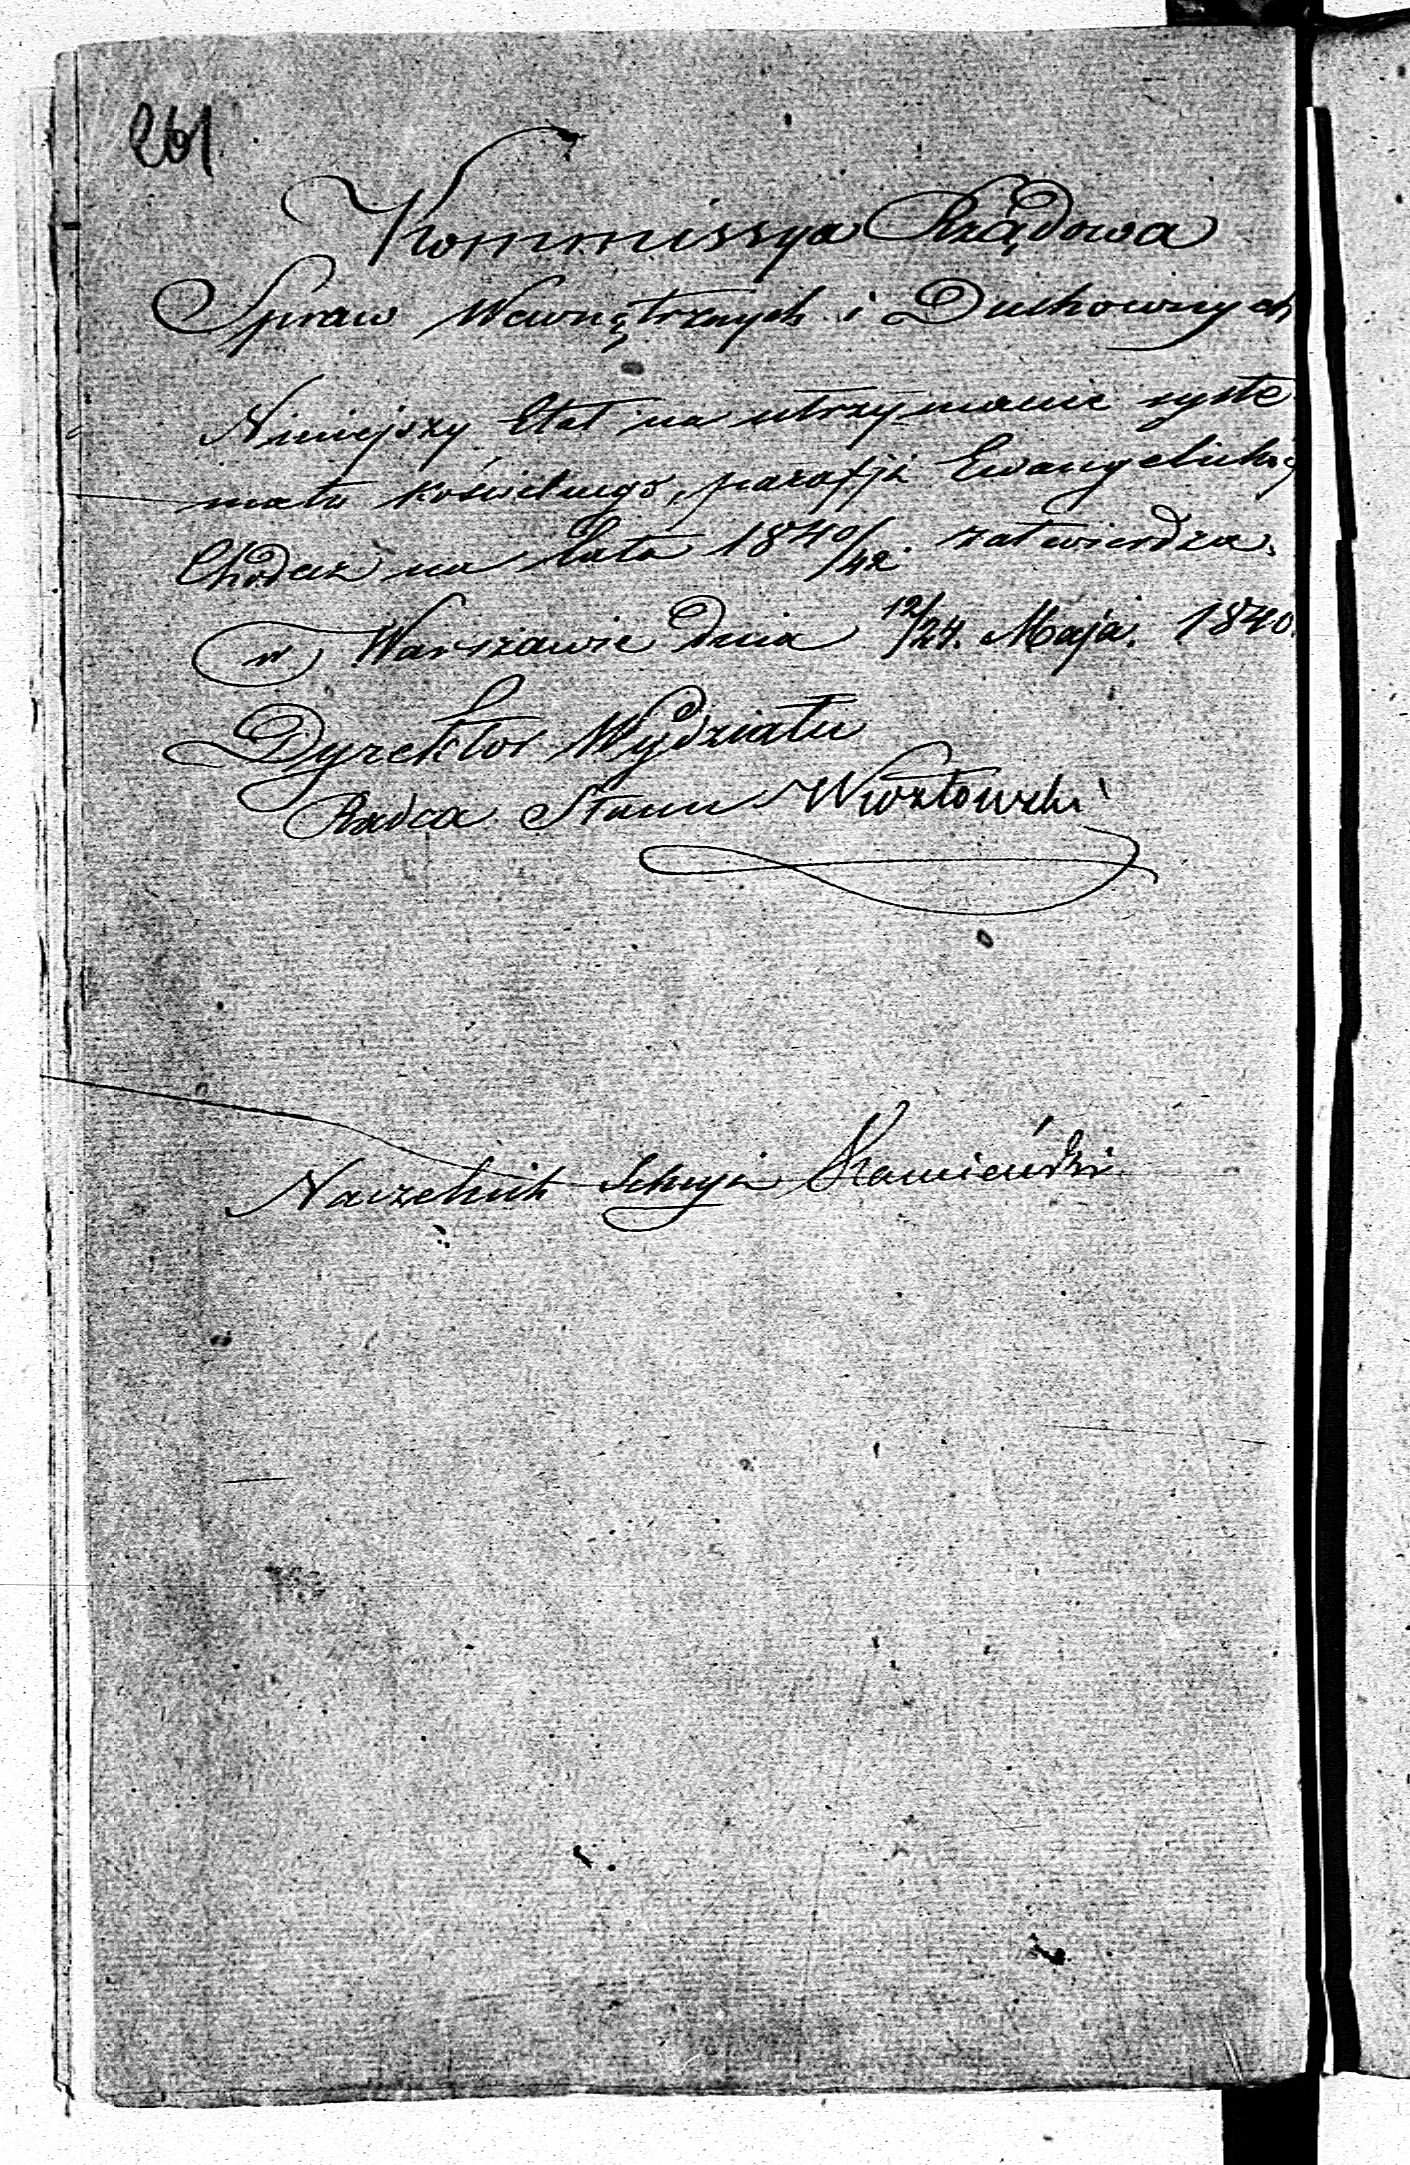 261
Kommissya Rządowa
Spraw Wewnętrznych i Duchownych
Niniejszy Etat na utrzymanie syste
matu kościelnego, parafji Ewangelickiej
Chodecz na lata 1840/42. zatwierdza.
w Warszawie dnia 12/24. Maja. 1840.
Dyrektor Wydziału
Radca Stanu
Naczelnik Sekcyi Kamieński